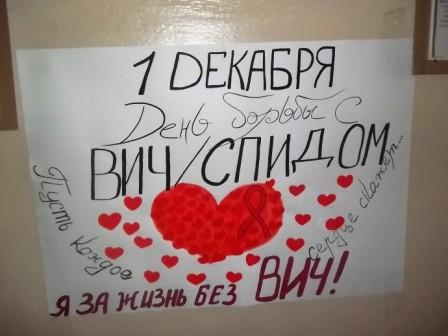 1 ДЕКАБРЯ
День борьбы с
ВИЧ/СПИДОМ
Пусть каждое
сердце скажет...
Я ЗА ЖИЗНЬ БЕЗ ВИЧ!